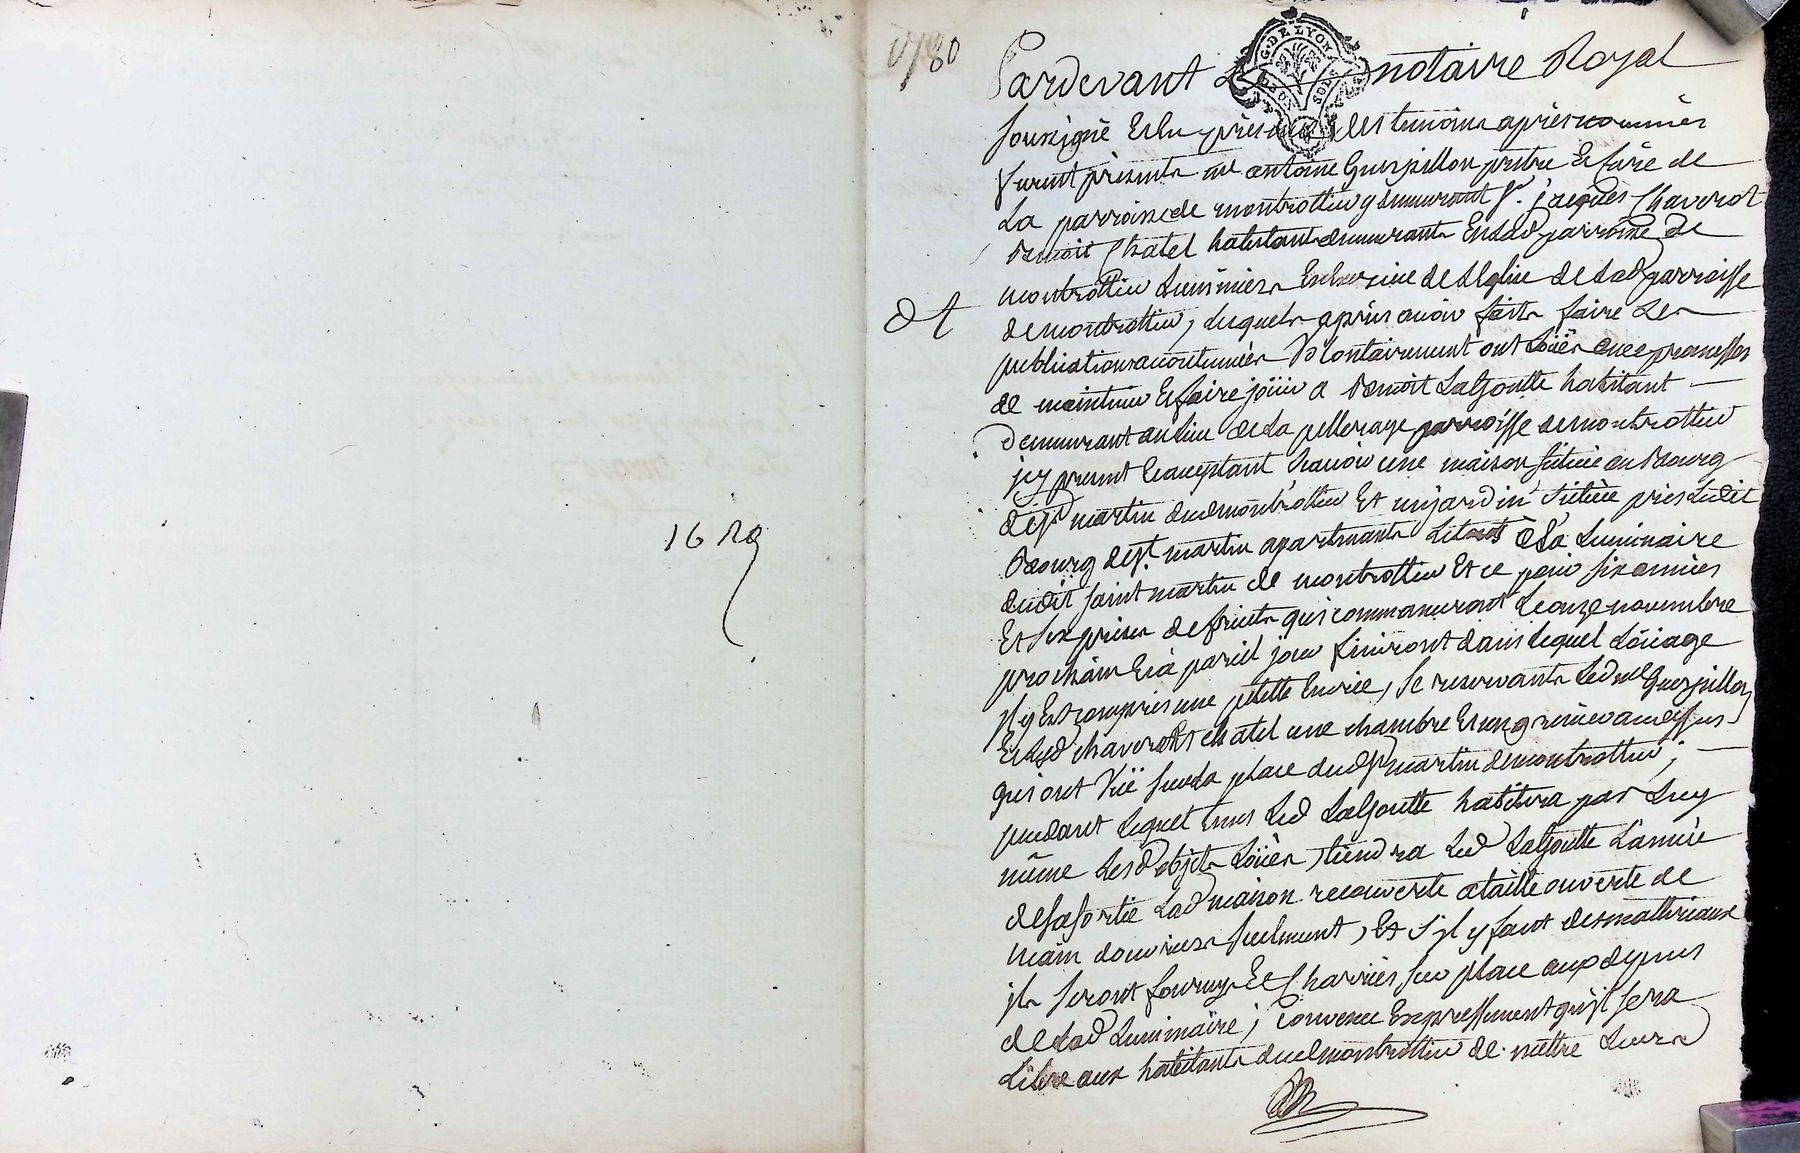 1780
G. DE LYON
Pardevant Le notaire Royal
soussigné Et En présence des temoins après nommés
furent présents mre antoine Guerpillon prêtre Et Curé de
La parroisse de montrottier y demeurant Sr. jacques Chaverot
Benoit Chatel habitants demeurants En lad parroisse de
montrottier Luminiers En Exercice de L'Eglise de Lad parroisse
de montrottier, Lesquels après avoir faits faire Les
publications accoutumées Volontairement ont Loüés avec promesses
de maintenir Et faire joüir a Benoit Lagoutte habitant
demeurant au Lieu de La pelleraye parroisse de montrottier
jcy present Et acceptant Scavoir une maison Scitüée au Bourg
de St martin dud montrottier Et un jardin Scitüée pres Ledit
Bourg de St. martin apartenants à La Luminaire
dudit Saint martin de montrottier Et ce pour six années
Et six prises de fruits qui commanceront Le onze novembre
prochain Et à pareil jour finiront dans lequel Loüage
Il y Est compris une petitte Ecurie, Se reservants Led mre Guerpillon
Et Lesd chaverot Et chatel une chambre Et un grenier au dessus
qui ont Vüe sur La place dud St martin de montrottier;
pendant Lequel tems Led Lagoutte habitera par Luy
même Lesd objets Loüés, tiendra Led Lagoutte L'année
de sa sortie Lad maison recouverte a taille ouverte de
main d'ouvriers seulement, Et s'jl y faut des matteriaux
jls seront fournys Et Charriés sur place aux depens
de Lad Luminaire; Convenu Expressement qu'jl sera
Libre aux habitants dud montrottier de mettre Leurs
16 Rd